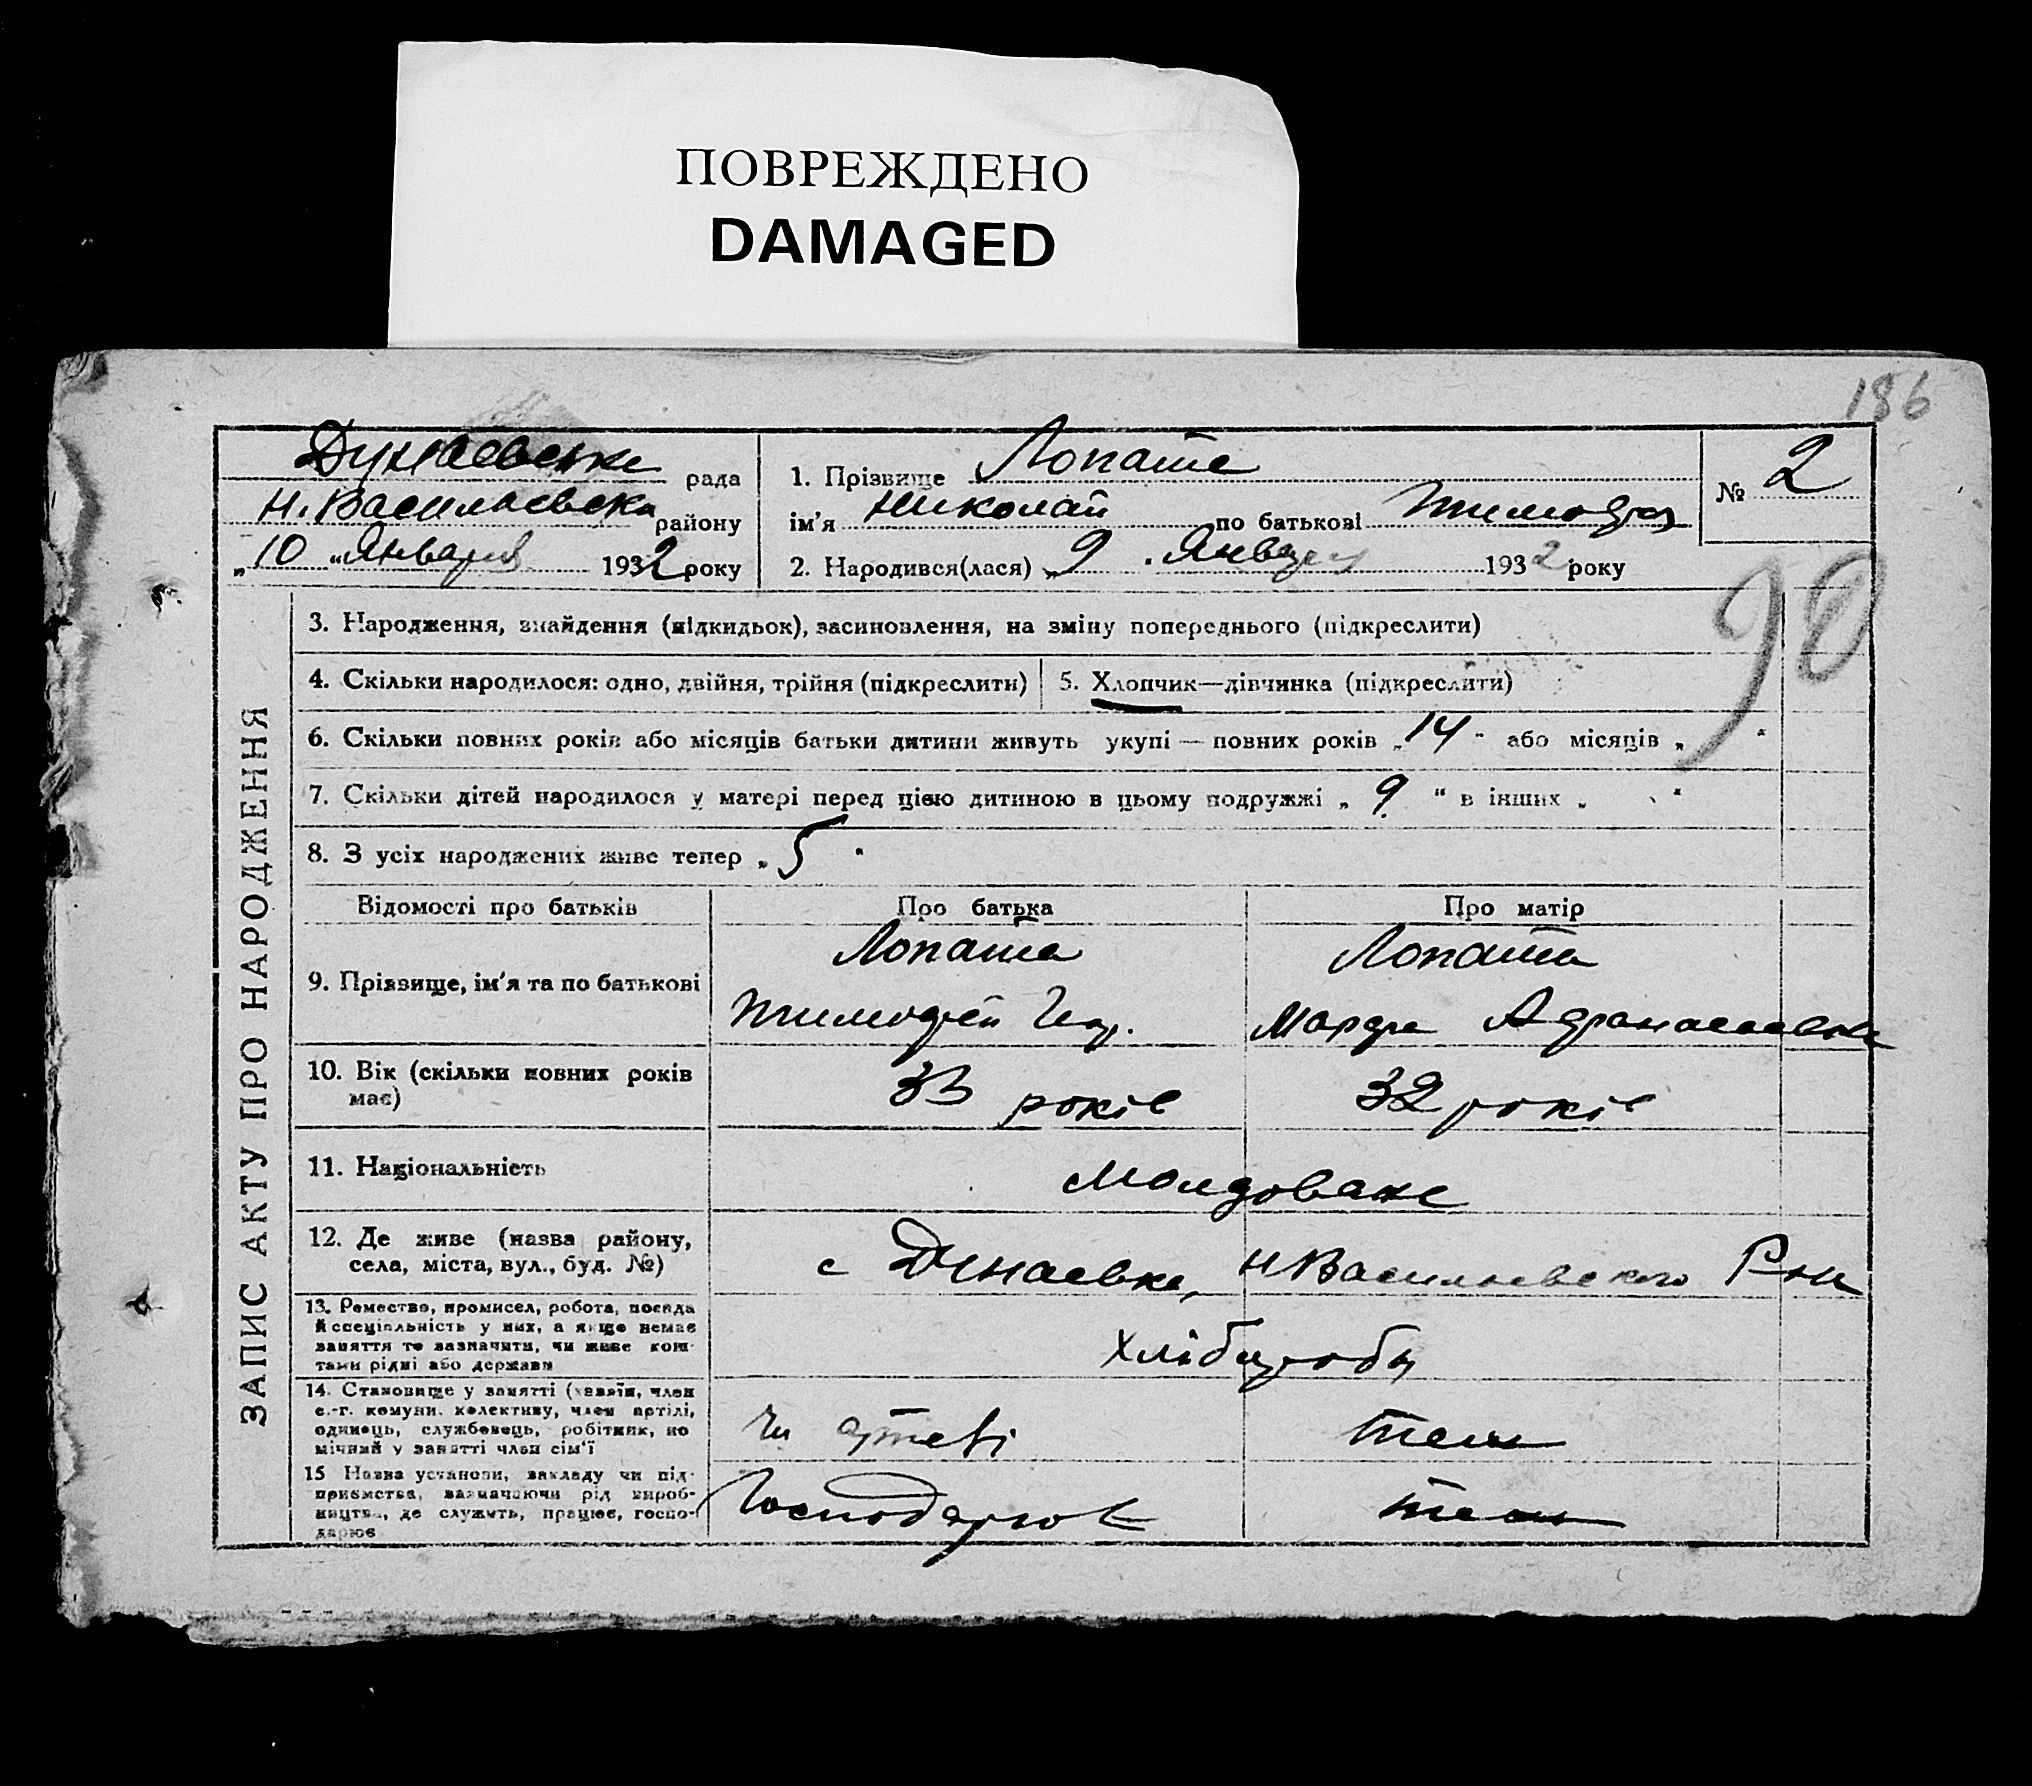 ПОВРЕЖДЕНО
DAMAGED
186
Дунаевське рада
Н. Васильевска району
„10 " Января 1932 року
1. Прізвище Лопата
ім'я Николай по батькові Тимоф
2. Народився(лася) „9 " Января 1932 року
№ 2
90
ЗАПИС АКТУ ПРО НАРОДЖЕННЯ
3. Народження, знайдення (підкидьок), засиновлення, на зміну попереднього (підкреслити)
4. Скільки народилося: одно, двійня, трійня (підкреслити)
5. Хлопчик—дівчинка (підкреслити)
6. Скільки повних років або місяців батьки дитини живуть укупі — повних років „14" або місяців „ "
7. Скільки дітей народилося у матері перед цією дитиною в цьому подружжі „ 9 " в інших „ "
8. З усіх народжених живе тепер „ 5 "
Відомості про батьків Про батька Про матір
9. Прізвище, ім'я та по батькові
Лопата
Тимофей
Лопата
Марфа Афанасьевна
10. Вік (скільки повних років
має)
33 років 32 років
11. Національність
Молдоване
12. Де живе (назва району,
села, міста, вул., буд. №)
с Дунаевка, Н Васильевского Р-ни
13. Ремество, промисел, робота, посада
й спеціяльність у них, а якщо немає
заняття то зазначити, чи живе кош-
тами рідні або держави
Хлібороби
14. Становище у занятті (хазяїн, член
с.-г. комуни, колективу, член артілі,
одинець, службовець, робітник, по
мічний у занятті член сім'ї
Чл артеві теж
15 Назва установи, закладу чи під-
приємства, зазначаючи рід вироб-
ництва, де служить, працює, госпо-
дарює
Господарює теж